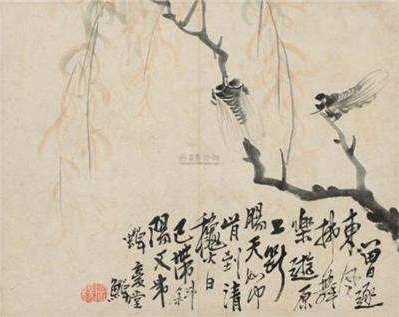 曾逐
東風
拂舞
樂遊原
上斷
腸天如何
肯到清
穐日
已帶斜
陽又帶
蟬 復堂
鱓